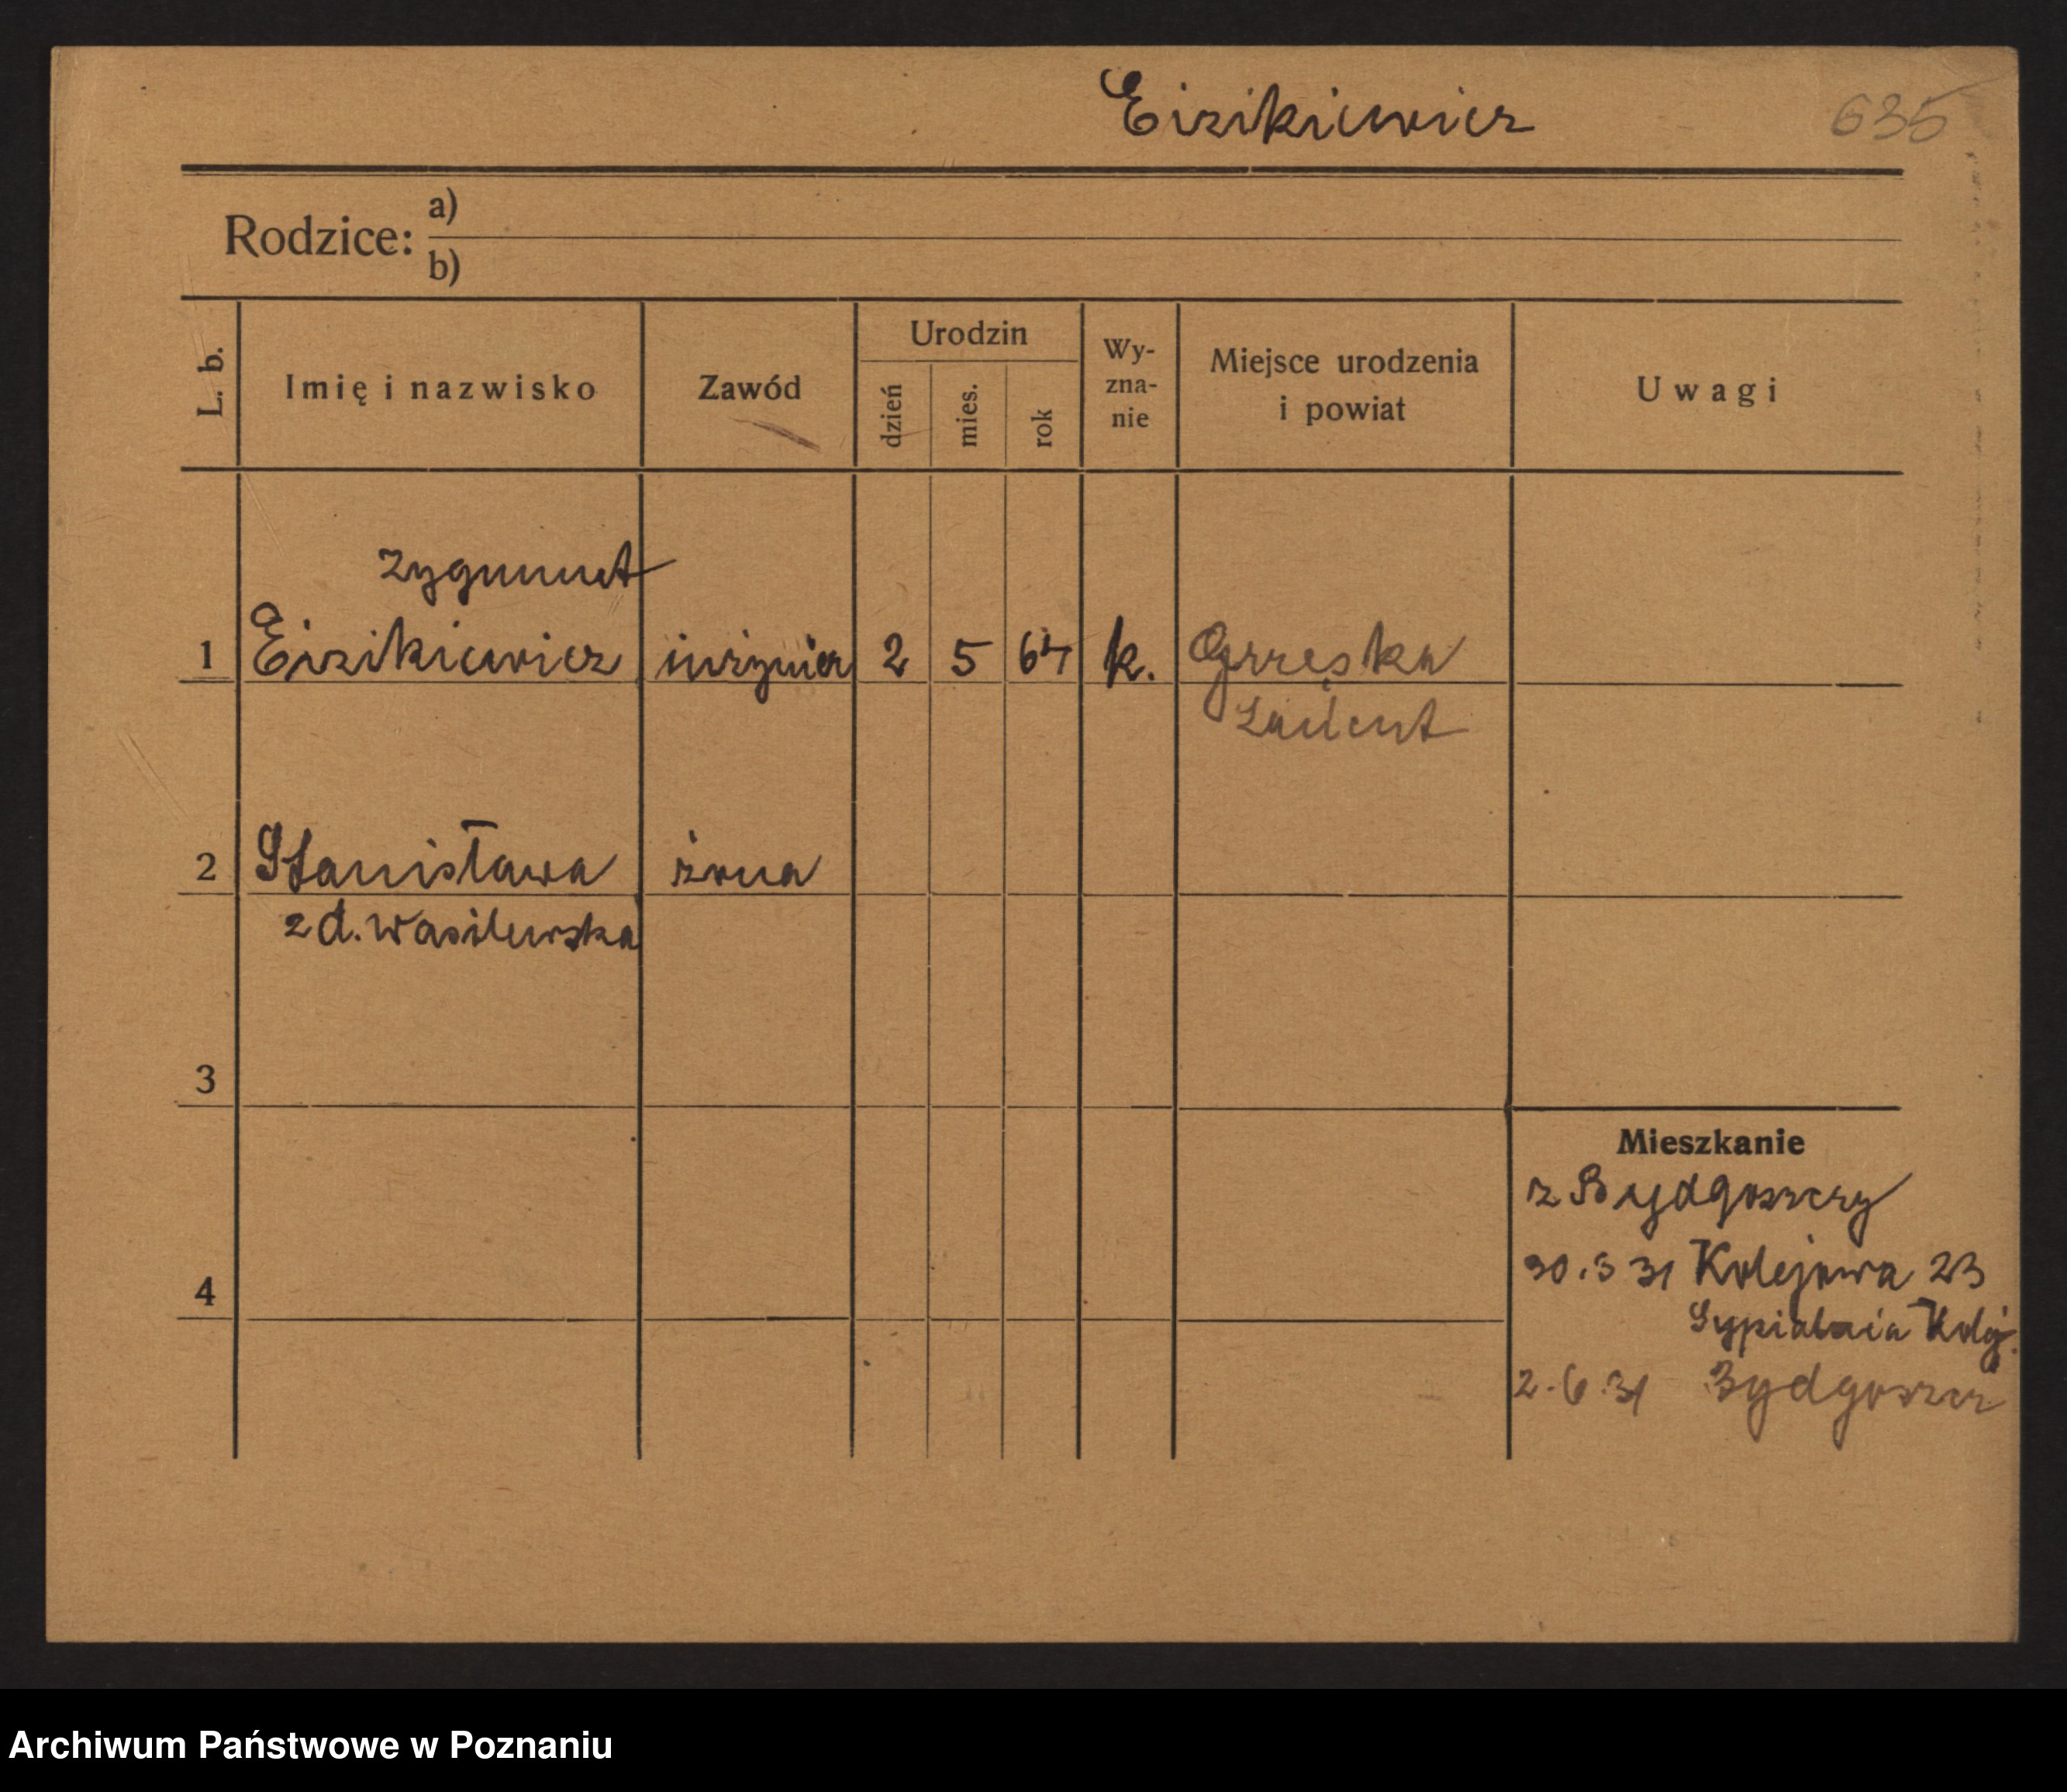 Eizikiewicz 635
Rodzice: a)
b)
L. b. Imię i nazwisko Zawód Urodzin dzień mies. rok Wy-zna-nie Miejsce urodzenia i powiat Uwagi
Zygmunt
1 Eizikiewicz inżynier 2 5 64 k. Grzęska
Łańcut
2 Stanisława żona
z d. Wasilewska
3
Mieszkanie
z Bydgoszczy
30.5 31 Kolejowa 23
Sypialnia Kolej.
4
2.6.31 Bydgoszcz
Archiwum Państwowe w Poznaniu